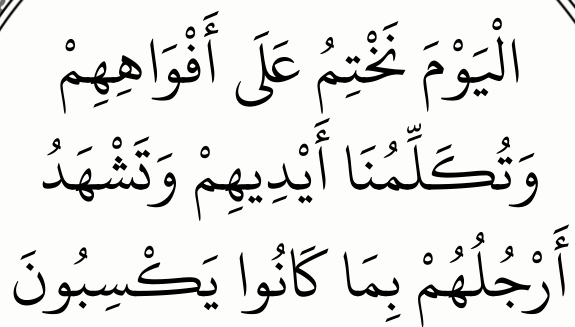 الْيَوْمَ نَخْتِمُ عَلَى أَفْوَاهِهِمْ
وَتُكَلِّمُنَا أَيْدِيهِمْ وَتَشْهَدُ
أَرْجُلُهُمْ بِمَا كَانُوا يَكْسِبُونَ